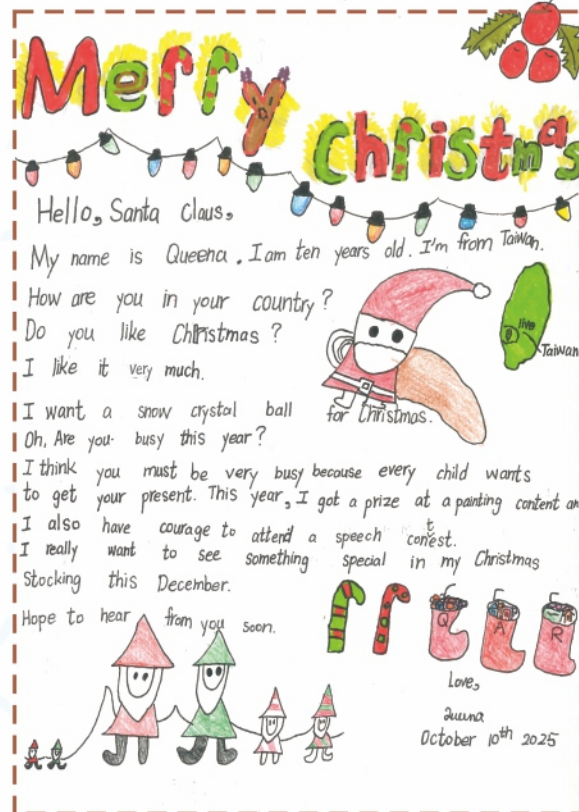 Merry Christmas
Hello, Santa Claus,
My name is Queena. I am ten years old. I'm from Taiwan.
How are you in your country?
Do you like Christmas?
I like it very much.
live
Taiwan
I want a snow crystal ball for Christmas.
Oh, Are you busy this year?
I think you must be very busy because every child wants
to get your present. This year, I got a prize at a painting content an
I also have courage to attend a speech contest.
I really want to see something special in my Christmas
Stocking this December.
Hope to hear from you soon.
Q A R
Love,
Queena
October 10th 2025